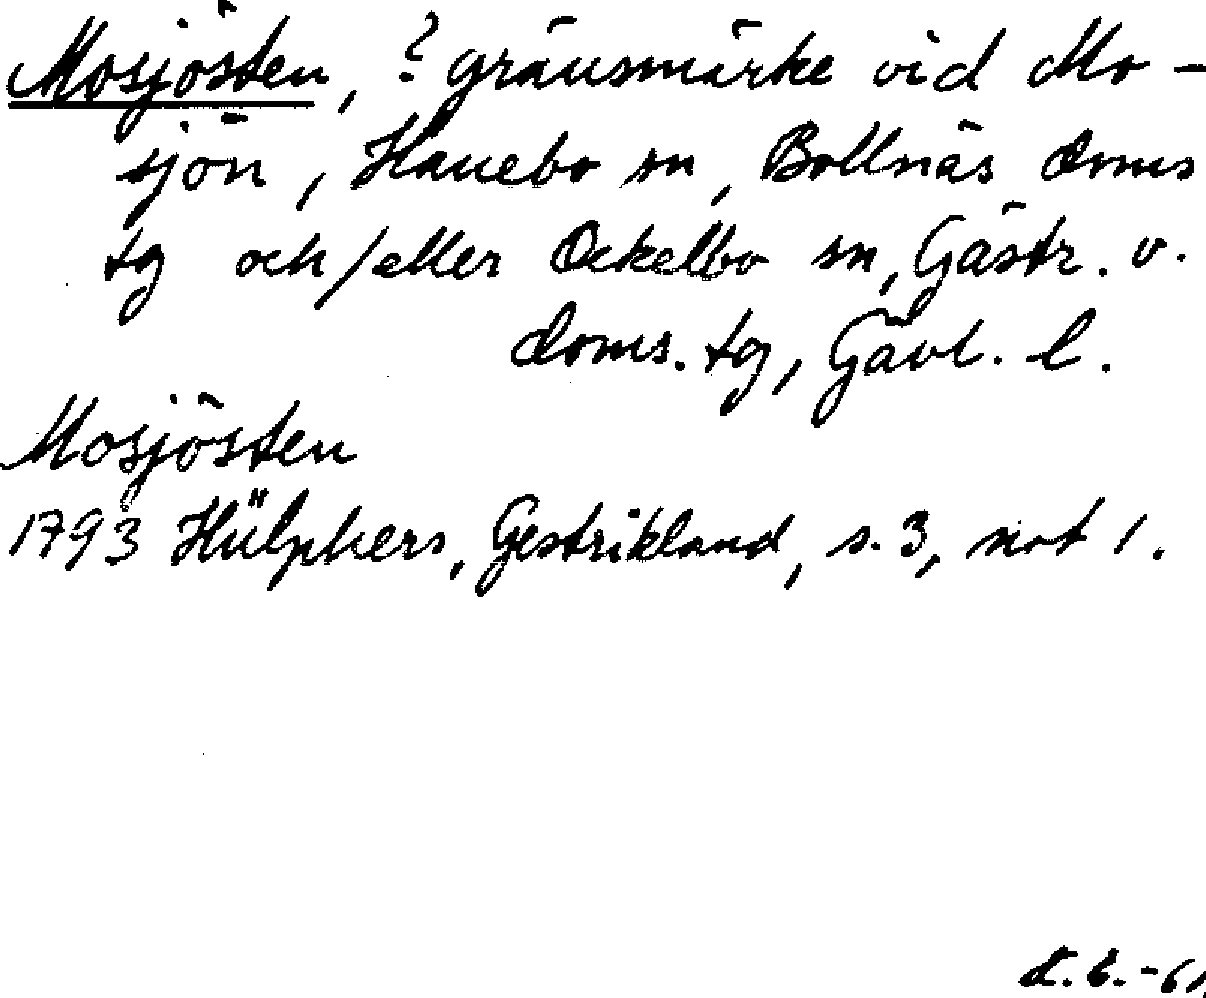 Mosjösten, ? gränsmärke vid Mo-
sjön, Hanebo sn, Bollnäs doms
tg och/eller Ockelbo sn, Gästr. v.
doms. tg, Gävl. l.
Mosjösten
1793 Hülphers, Gestrikland, s. 3, not 1.